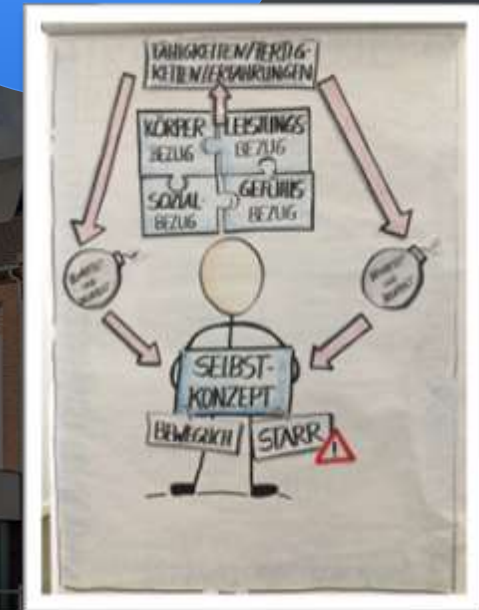 FÄHIGKEITEN/FERTIG-
KEITEN/ERFAHRUNGEN
KÖRPER
BEZUG
LEISTUNGS
BEZUG
SOZIAL-
BEZUG
GEFÜHLS
BEZUG
SELBST-
KONZEPT
BEWEGLICH
STARR
!